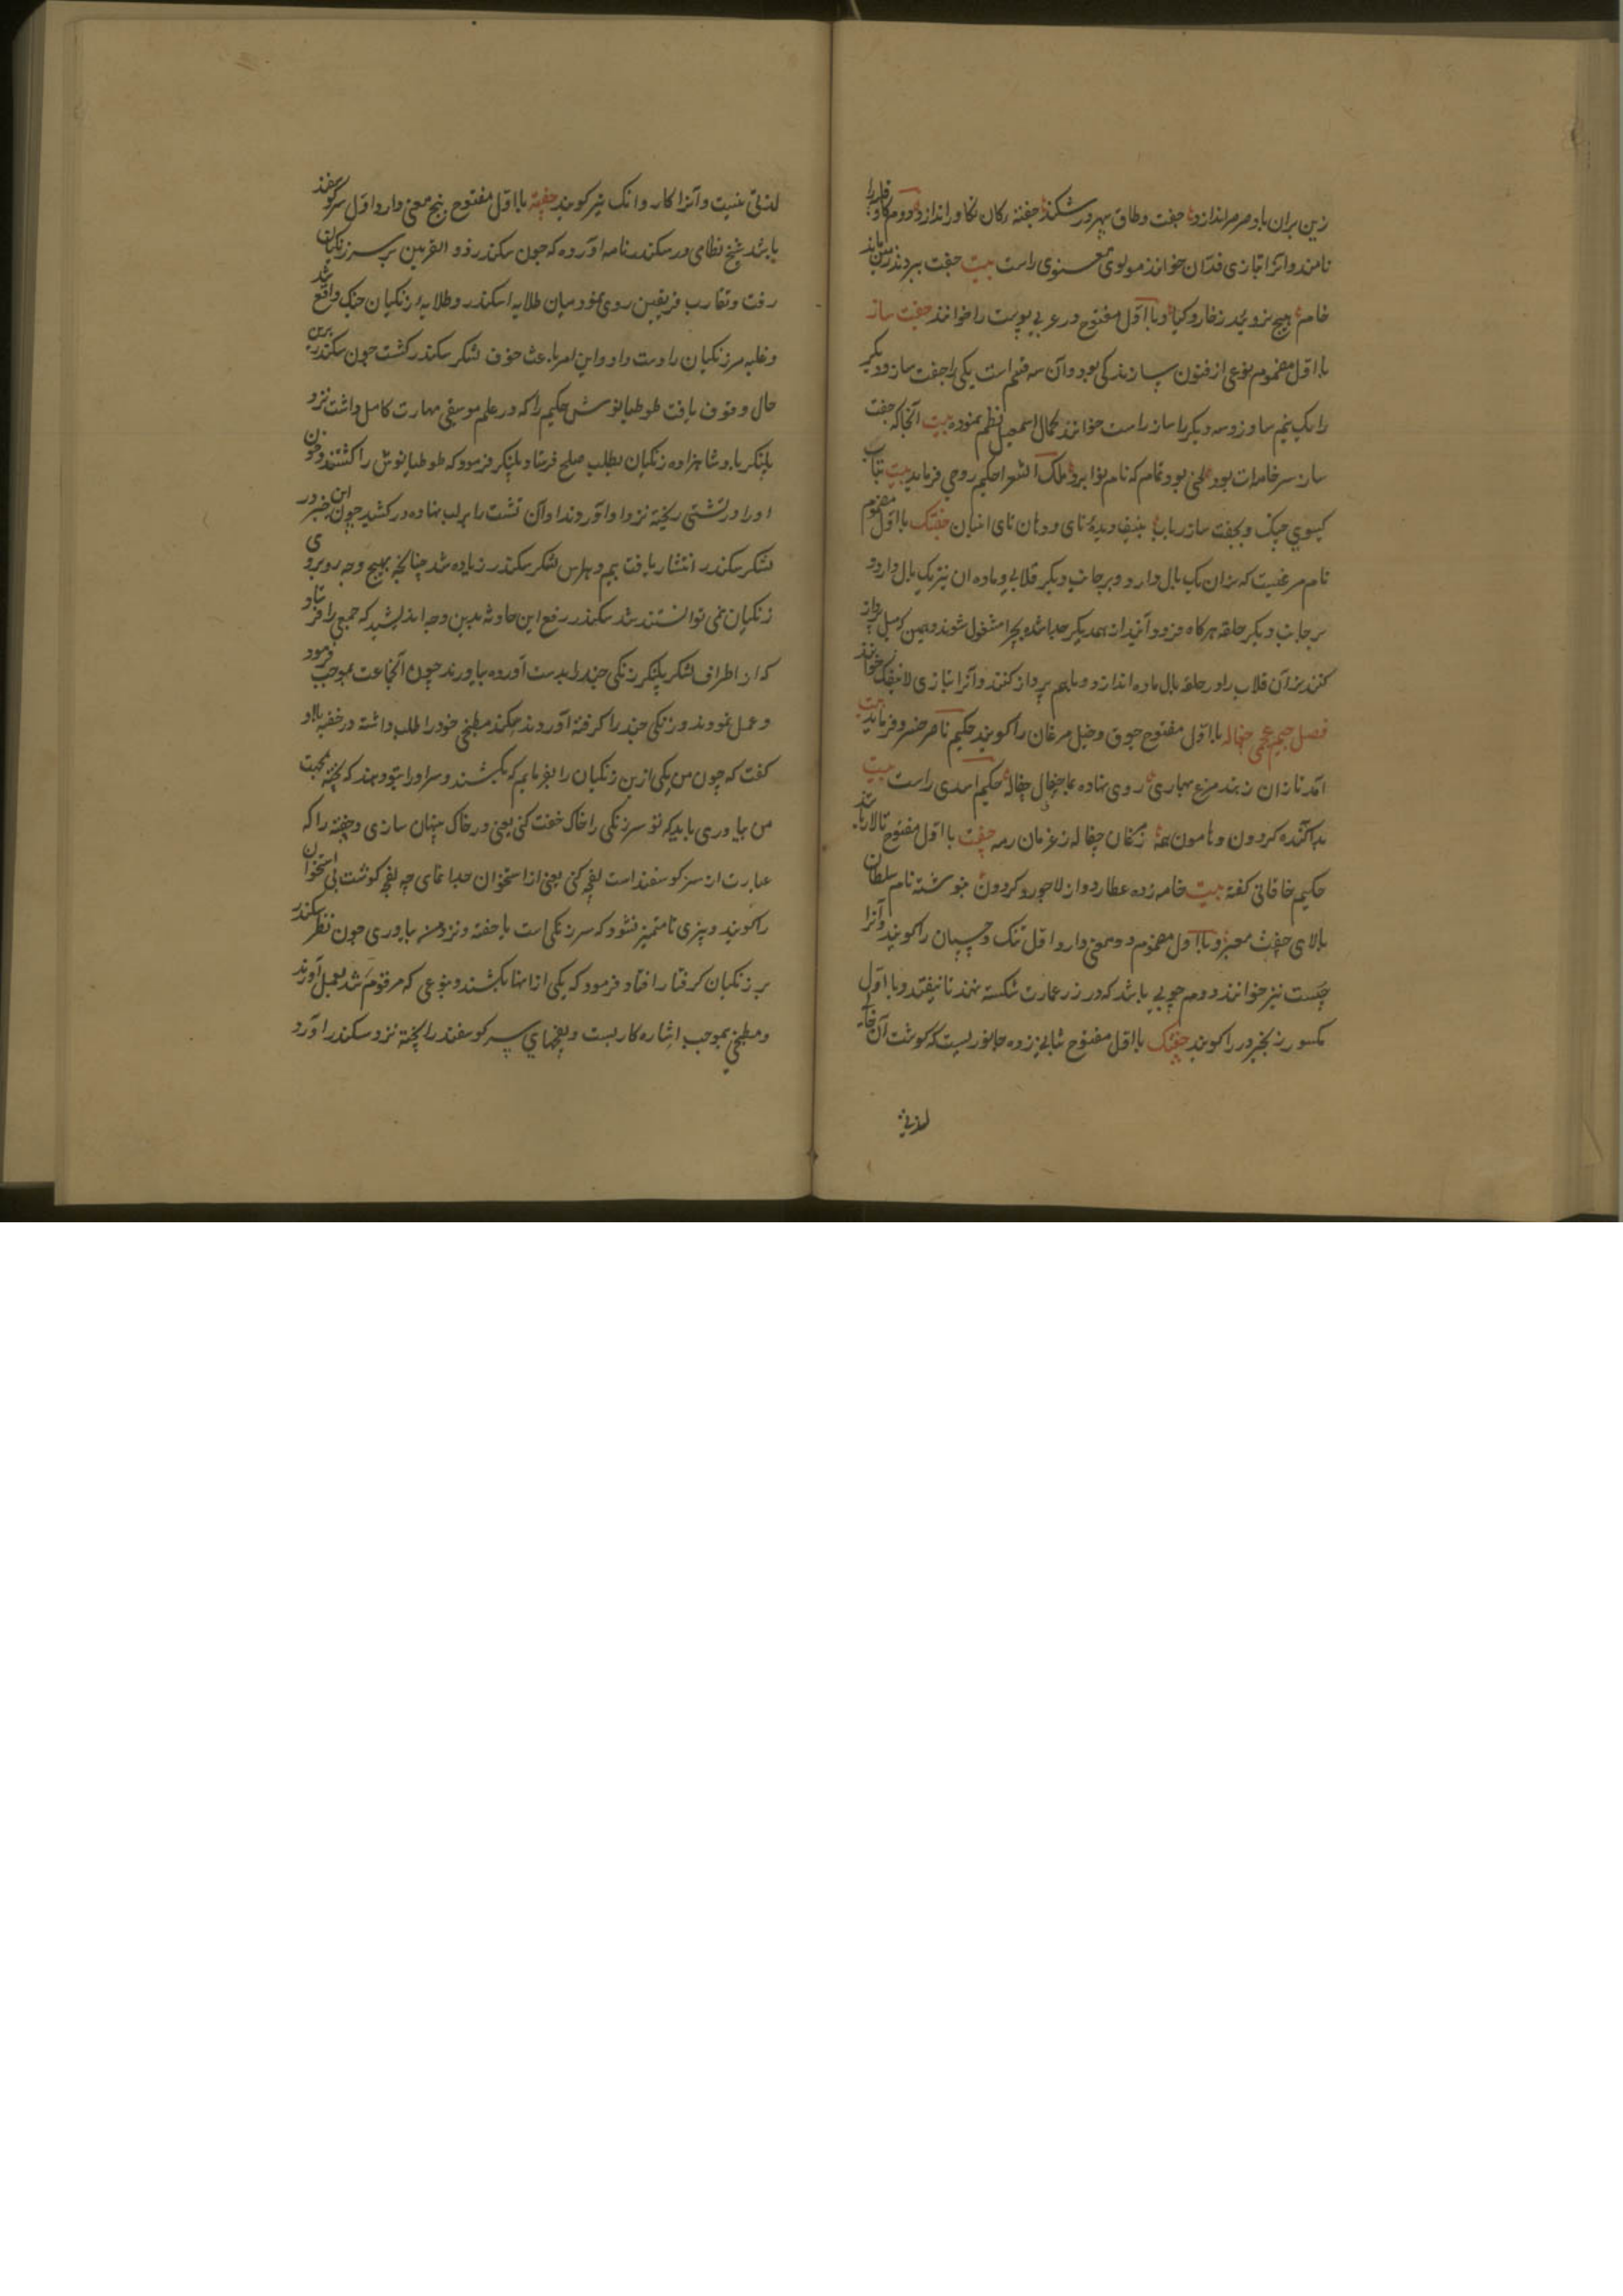 زین بران باد صرصر اندازد جفت وطاق سپهر در شکند جفته رکان نکاور اندازد دوم کاو قلبه را
نامند وانرا بتازی فدان خوانند مولوی معنوی راست بیت جفت بردند زمین ماند
خام هیچ نروید ز خار و کیا و با اول مفتوح در عربی پوست را خوانند جفت ساز
با اول مضموم نوعی از فنون سازندکی بود وآن سه قسم است یکی را جفت ساز ودیکر
را یک نیم ساز وسه دیکر را ساز راست خوانند کمال اسمعیل نظم نموده بیت آنجا که جفت
ساز سر خامات بود لحنی بود تمام که نام نوا برد ملک الشعرا حکیم روحی فرماید بیت بتاب
کیسوی چنک وبجفت ساز رباب ودیدۀ نای ودهان نای انبان جفتک با اول مضموم
نام مرغیست که نران یک بال دارد وبر جانب دیکر قلابی وماده ان نیز یک بال دارد و
بر جانب دیکر حلقه هرکاه فرود آیند از همدیکر جدا شده بچرا مشغول شوند وچون میل پرواز
کنند نر آن قلاب را در حلقۀ بال ماده اندازد وباهم پرواز کنند وآنرا بتازی لاینفک خوانند
فصل جیم عجمی چفاله با اول مفتوح جوق وخیل مرغان را کویند حکیم ناصر خسرو فرماید بیت
آمد تازان زهند مرغ بهاری روی نهاده بما چفال چفاله حکیم اسدی راست بیت
پراکنده کردون وهامون همه زمرغان چفاله زغرمان رمه چفت با اول مفتوح تالار باشد
حکیم خاقانی کفته بیت خامه زده عطارد واز لاجورد کردون بنوشته نام سلطان
بالای چفت معبر وبا اول مضموم دو معنی دارد اول تنک وچسپان را کویند وآنرا
چست نیز خوانند دوم چوبی باشد که در زر عمارت شکسته نهند تا نیفتد وبا اول
مکسور زنجیر در را کویند چفتک با اول مفتوح بثانی زده جانوریست که کوشت آن
لذتی
لذتی نیست وآنرا کاروانک نیز کویند چفته با اول مفتوح پنج معنی دارد اول سر کوسفند
باشد شیخ نظامی در سکندرنامه اورده که چون سکندر ذو القرنین بر سر زنکیان
رفت وتقارب فریقین روی نمود میان طلایه اسکندر وطلایه از زنکیان جنک واقع شد
وغلبه مر زنکیان را دست داد واین امر باعث خوف لشکر سکندر کشت چون سکندر برین
حال وقوف یافت طوطیانوش حکیم را که در علم موسیقی مهارت کامل داشت نزد
پلنکر پادشاهزاده زنکیان بطلب صلح فرستاد پلنکر فرمود که طوطیانوش را کشتند وخون
او را در تشتی ریخته نزد او آوردند او آن تشت را بر لب نهاده درکشید چون این خبر در
لشکر سکندر انتشار یافت بیم وهراس لشکر سکندر زیاده شد چنانچه بهیچ وجه روبروی
زنکیان نمی توانستند شد سکندر رفع این حادثه بدین وجه اندیشید که جمعی را فرستاد
که از اطراف لشکر پلنکر زنکی چند را بدست آورده بیاورند چون آنجماعت بموجب فرمود
وعمل نمودند وزنکی چند را کرفته آوردند سکندر مطبخی خود را طلب داشته در خفیه با او
کفت که چون من یکی از ین زنکیان را بفرمایم که بکشند وسر او را بتو دهند که پخته بجهت
من بیاوری باید که تو سر زنکی را خاک خفت کنی یعنی در خاک پنهان سازی وچفته را که
عبارت از سر کوسفند است لفچه کنی یعنی از استخوان جدا نمای چه لفچه کوشت بی استخوان
را کویند وپزی تا متمیز نشود که سر زنکی است یا چفته ونزد من بیاوری چون نظر سکندر
بر زنکیان کرفتار افتاد فرمود که یکی از انها بکشند وبنوعی که مرقوم شد بعمل آوردند
ومطبخی بموجب اشاره کار بست ولفچهای سر کوسفند را پخته نزد سکندر اورد